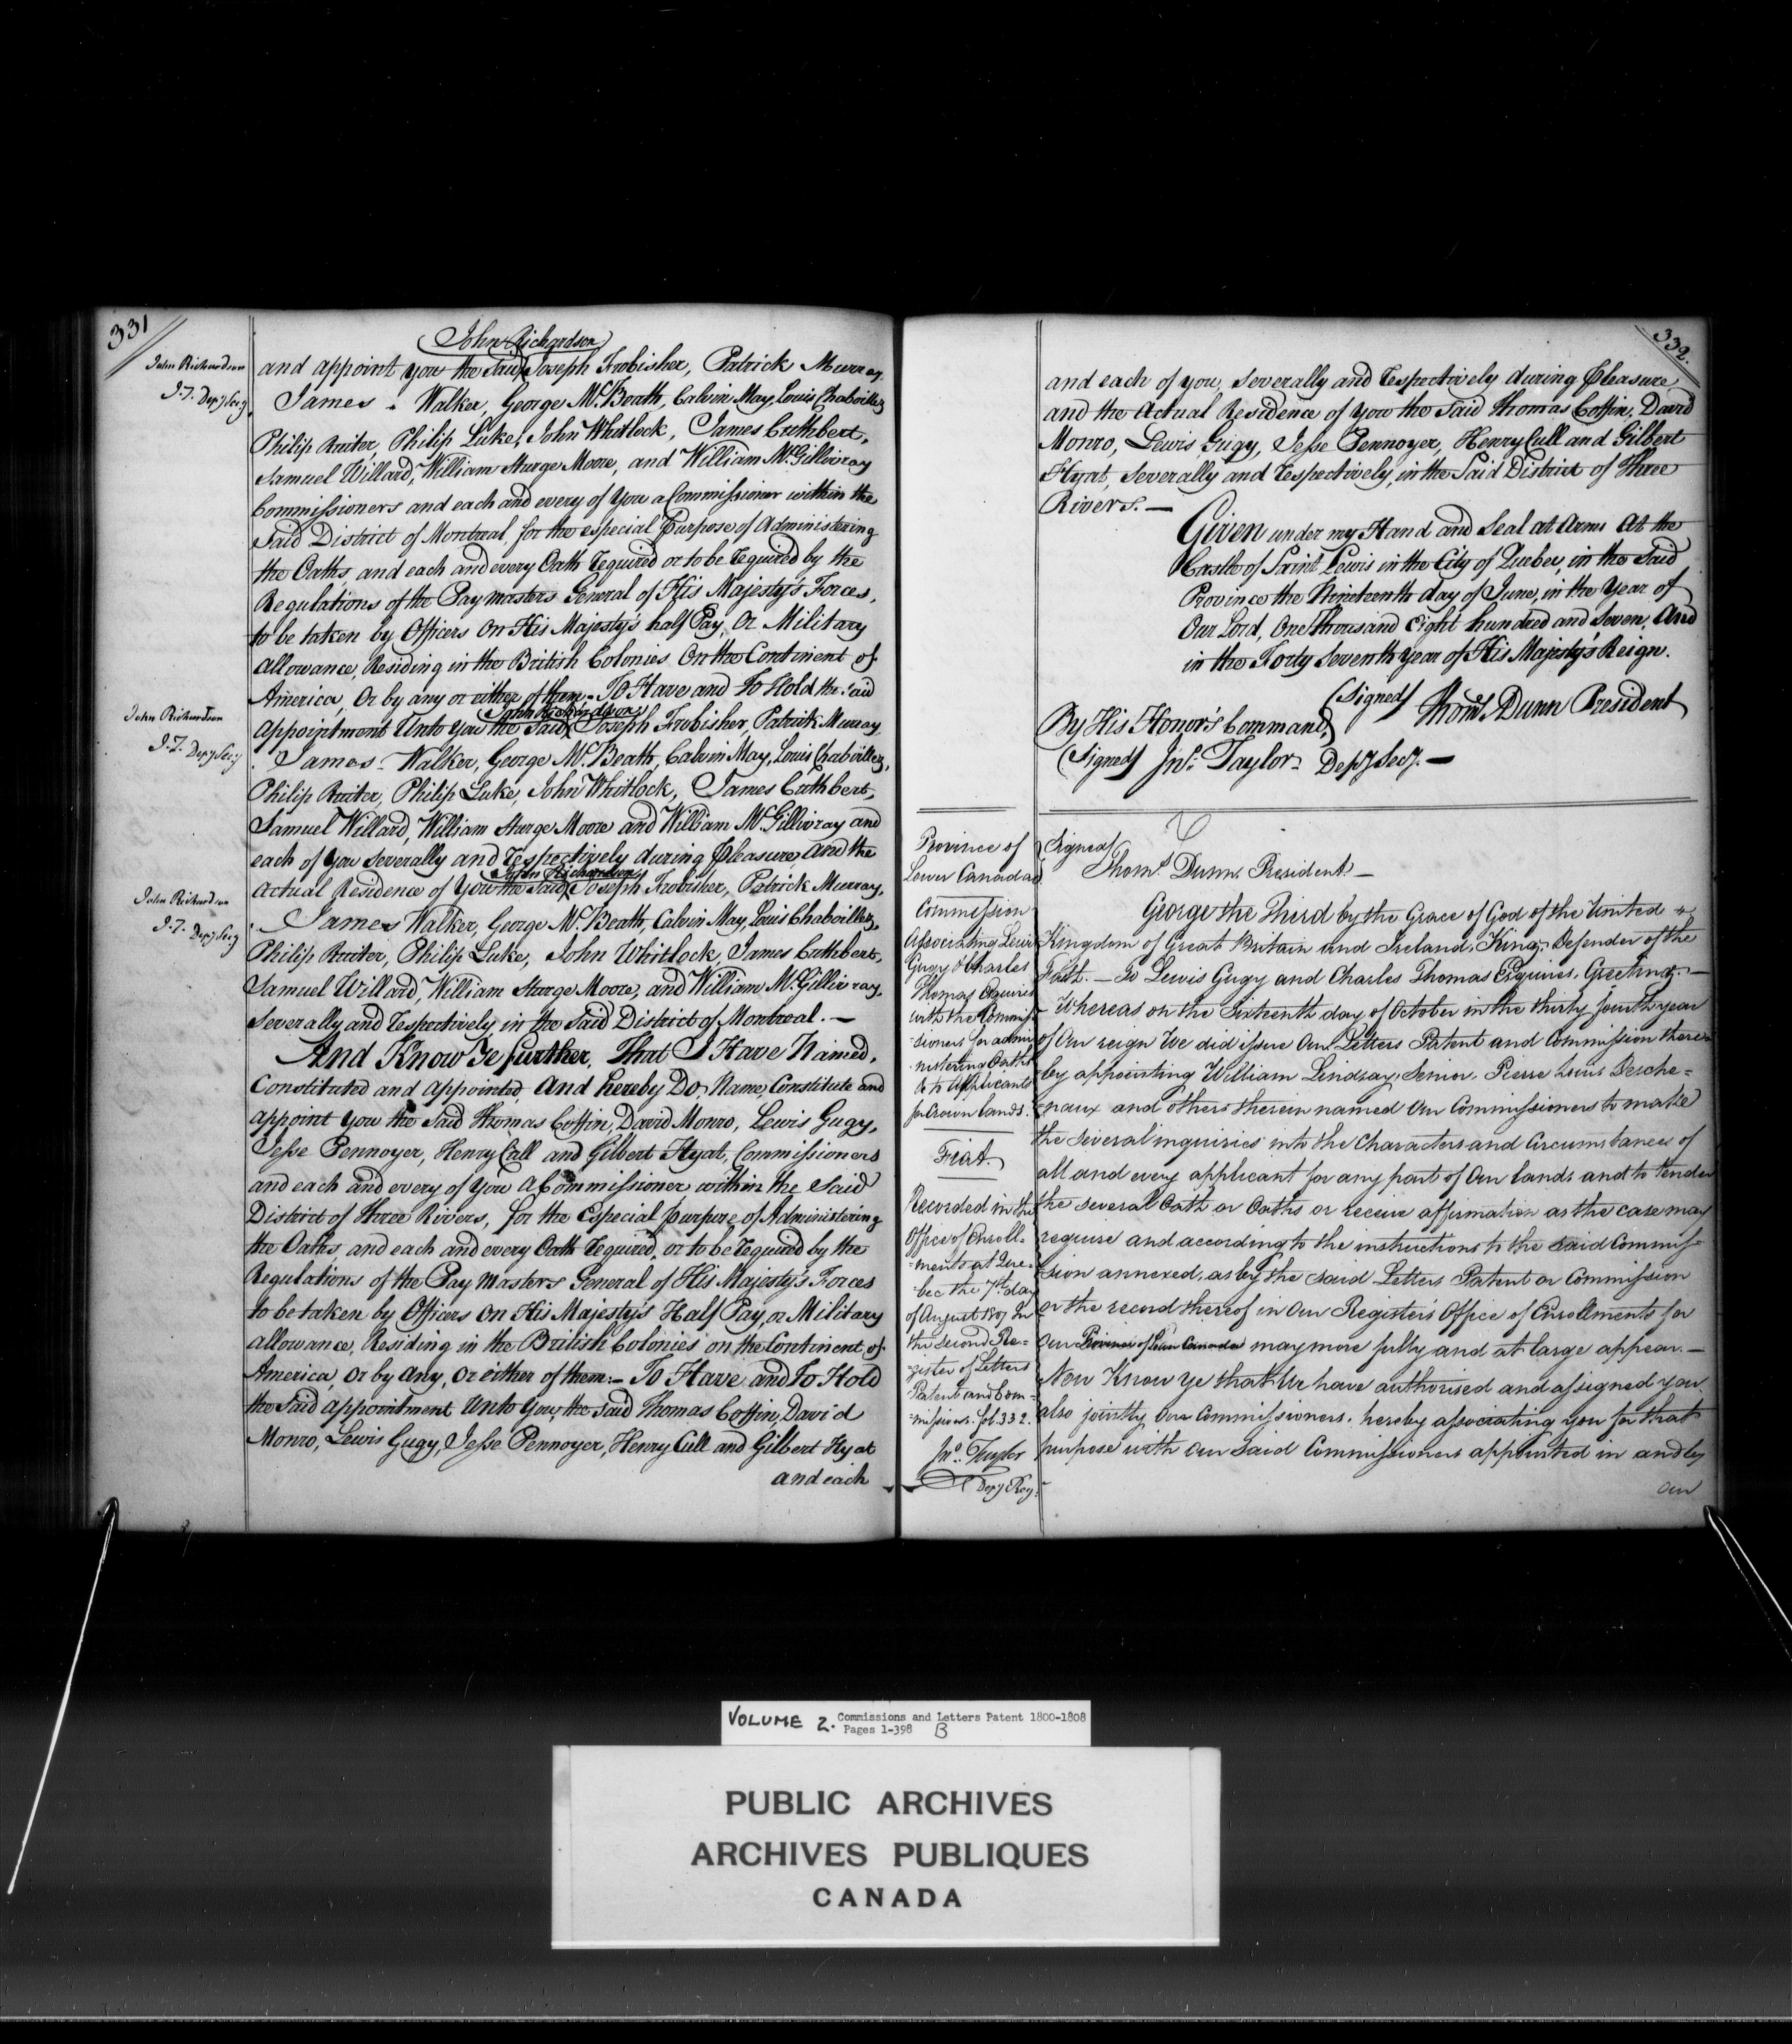 331
John Richardson
J.T. Depy Secy
John Richardson
and appoint you the Said Joseph Frobisher, Patrick Murray,
James Walker, George McBeath, Calvin May, Louis Chaboillez,
Philip Ruiter, Philip Luke, John Whitlock, James Cuthbert,
Samuel Willard, William Sturge Moore, and William McGillivray
Commissioners and each and every of You a Commissioner within the
Said District of Montreal, for the especial Purpose of Administering
the Oaths, and each and every Oath required or to be required by the
Regulations of the Paymasters General of His Majesty's Forces,
to be taken by Officers On His Majesty's half Pay, Or Military
allowance, Residing in the British Colonies On the Continent of
America, Or by any or either of them - To Have and To Hold the Said
John Richardson
J.T. Depy Secy
John Richardson
appointment Unto You the Said Joseph Frobisher, Patrick Murray,
James Walker, George McBeath, Calvin May, Louis Chaboillez,
Philip Ruiter, Philip Luke, John Whitlock, James Cuthbert,
Samuel Willard, William Sturge Moore and William McGillivray and
each of You Severally and respectively during Pleasure, and the
John Richardson
J.T. Depy Secy
John Richardson
actual Residence of You the Said Joseph Frobisher, Patrick Murray,
James Walker, George McBeath, Calvin May, Louis Chaboillez,
Philip Ruiter, Philip Luke, John Whitlock, James Cuthbert,
Samuel Willard, William Sturge Moore, and William McGillivray,
Severally and respectively in the Said District of Montreal. —
And Know Ye further, That I Have Named,
Constituted and appointed, And hereby Do, Name, Constitute and
appoint You the Said Thomas Coffin, David Monro, Lewis Gugy,
Jesse Pennoyer, Henry Cull and Gilbert Hyat, Commissioners
and each and every of You a Commissioner within the Said
District of Three Rivers, for the Especial purpose of Administering
the Oaths, and each and every Oath required, or to be required by the
Regulations of the Pay Masters General of His Majesty's Forces
to be taken by Officers On His Majesty's Half Pay, or Military
allowance, Residing in the British Colonies on the Continent of
America, Or by Any, Or either of them:- To Have and To Hold
the Said appointment Unto You, the said Thomas Coffin, David
Monro, Lewis Gugy, Jesse Pennoyer, Henry Cull and Gilbert Hyat
and each
332.
and each of you, Severally and respectively during Pleasure
and the Actual Residence of You the Said Thomas Coffin, David
Monro, Lewis Gugy, Jesse Pennoyer, Henry Cull and Gilbert
Hyat, Severally and respectively, in the Said District of Three
Rivers. —
Given under my Hand and Seal at Arms At the
Castle of Saint Lewis in the City of Quebec, in the Said
Province the Nineteenth day of June, in the Year of
Our Lord, One Thousand Eight hundred and Seven, And
in the Forty Seventh Year of His Majesty's Reign.
(Signed) Thoms Dunn President
By His Honor's Command,
(Signed) Jno. Taylor Depy Secy. —
Province of
Lower Canada
Commission
Associating Lewis
Gugy & Charles
Thomas Esquires
with the Commis-
-sioners for admi-
nistering Oaths
& to Applicants
for Crown Lands.
Fiat.
Recorded in the
Office of Enroll-
-ments at Que-
bec the 7th day
of August 1807 In
the Second Re-
-gister of Letters
Patent and Com-
-missions. fol. 332.
Jno. Taylor
Depy Reg.
Signed
Thoms Dunn President —
George the Third by the Grace of God of the United
Kingdom of Great Britain and Ireland, King, Defender of the
Faith. — To Lewis Gugy and Charles Thomas Esquires, Greeting. —
Whereas on the Sixteenth day of October in the thirty fourth year
of Our reign We did issue Our Letters Patent and Commission there-
-by appointing William Lindsay, Senior, Pierre Louis Desche-
-naux and others therein named Our Commissioners to make
the several inquiries into the Characters and Circumstances of
all and every applicant for any part of Our Lands and to tender
the several Oath or Oaths or receive affirmation as the case may
require and according to the instructions to the said Commis-
-sion annexed, as by the said Letters Patent or Commission
or the record thereof in Our Register's Office of Enrollments for
Our Province of Lower Canada may more fully and at large appear. —
Now Know Ye that We have authorised and assigned you
also jointly Our Commissioners, hereby associating you for that
purpose with Our said Commissioners appointed in and by
Our
VOLUME 2. Commissions and Letters Patent 1800-1808
Pages 1-398 B
PUBLIC ARCHIVES
ARCHIVES PUBLIQUES
CANADA